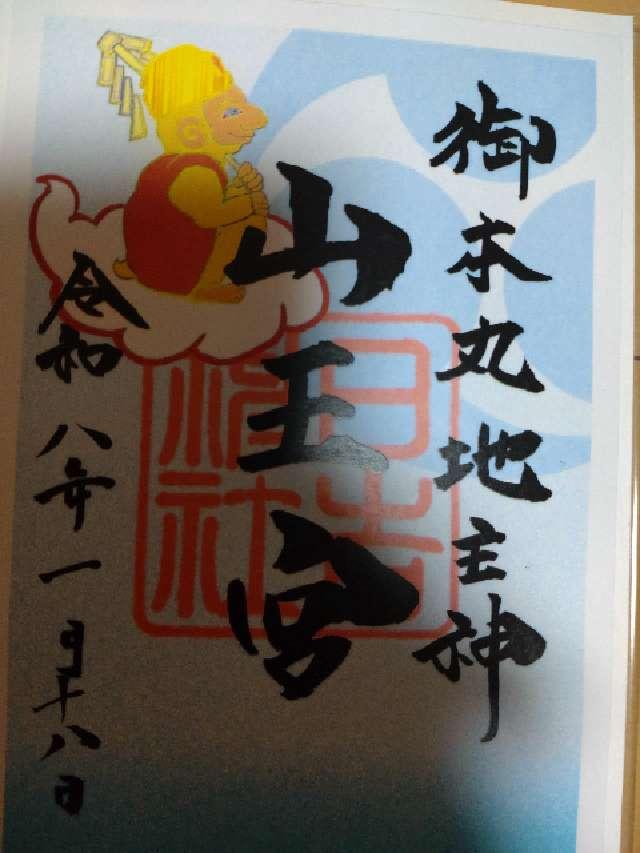 御本丸地主神
山王宮
日吉
神社
令和八年一月十八日